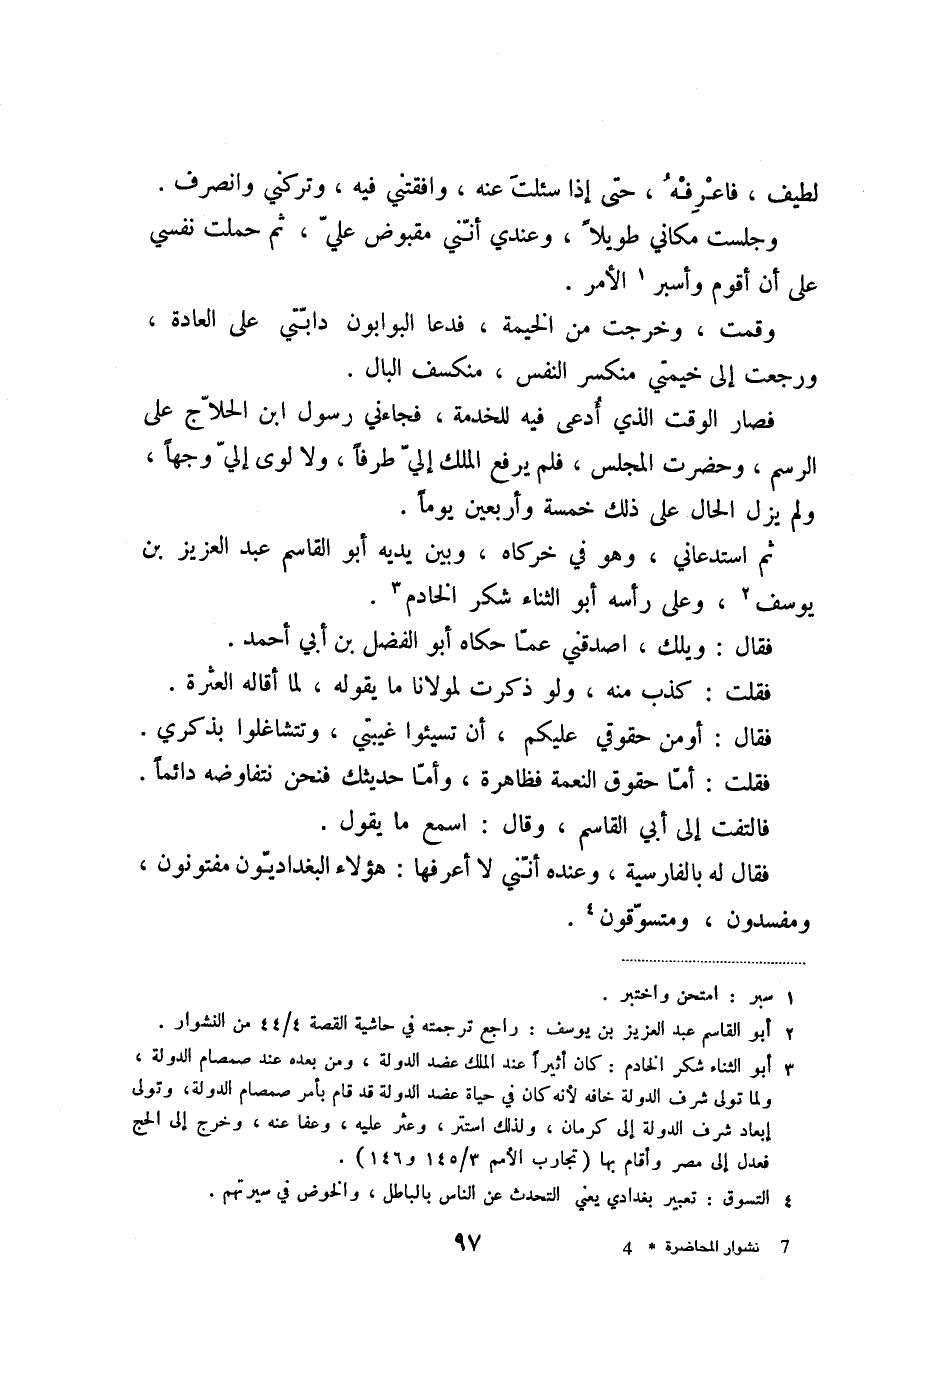 لطيف ، فاعْرِفْهُ ، حتّى إذا سئلتَ عنه ، وافقتني فيه ، وتركني وانصرف .
وجلست مكاني طويلاً ، وعندي أنّني مقبوض عليّ ، ثم حملت نفسي
على أن أقوم وأسبر ١ الأمر .
وقمت ، وخرجت من الخيمة ، فدعا البوابون دابّتي على العادة ،
ورجعت إلى خيمتي منكسر النفس ، منكسف البال .
فصار الوقت الذي أُدعى فيه للخدمة ، فجاءني رسول ابن الحلاّج على
الرسم ، وحضرت المجلس ، فلم يرفع الملك إليّ طرفاً ، ولا لوى إليّ وجهاً ،
ولم يزل الحال على ذلك خمسة وأربعين يوماً .
ثم استدعاني ، وهو في خركاه ، وبين يديه أبو القاسم عبد العزيز بن
يوسف ٢ ، وعلى رأسه أبو الثناء شكر الخادم ٣ .
فقال : ويلك ، اصدقني عمّا حكاه أبو الفضل بن أبي أحمد .
فقلت : كذب منه ، ولو ذكرت لمولانا ما يقوله ، لما أقاله العثرة .
فقال : أومن حقوقي عليكم ، أن تسيئوا غيبتي ، وتتشاغلوا بذكري .
فقلت : أمّا حقوق النعمة فظاهرة ، وأمّا حديثك فنحن نتفاوضه دائماً .
فالتفت إلى أبي القاسم ، وقال : اسمع ما يقول .
فقال له بالفارسية ، وعنده أنّني لا أعرفها : هؤلاء البغداديّون مفتونون ،
ومفسدون ، ومتسوّقون ٤ .
١ سبر : امتحن واختبر .
٢ أبو القاسم عبد العزيز بن يوسف : راجع ترجمته في حاشية القصة ٤٤/٤ من النشوار .
٣ أبو الثناء شكر الخادم : كان أثيراً عند الملك عضد الدولة ، ومن بعده عند صمصام الدولة ،
ولما تولى شرف الدولة خافه لأنه كان في حياة عضد الدولة قد قام بأمر صمصام الدولة، وتولى
إبعاد شرف الدولة إلى كرمان ، ولذلك استتر ، وعثر عليه ، وعفا عنه ، وخرج إلى الحج
فعدل إلى مصر وأقام بها ( تجارب الأمم ١٤٥/٣ و١٤٦ ) .
٤ التسوق : تعبير بغدادي يعني التحدث عن الناس بالباطل ، والخوض في سيرتهم .
7 نشوار المحاضرة * 4
٩٧